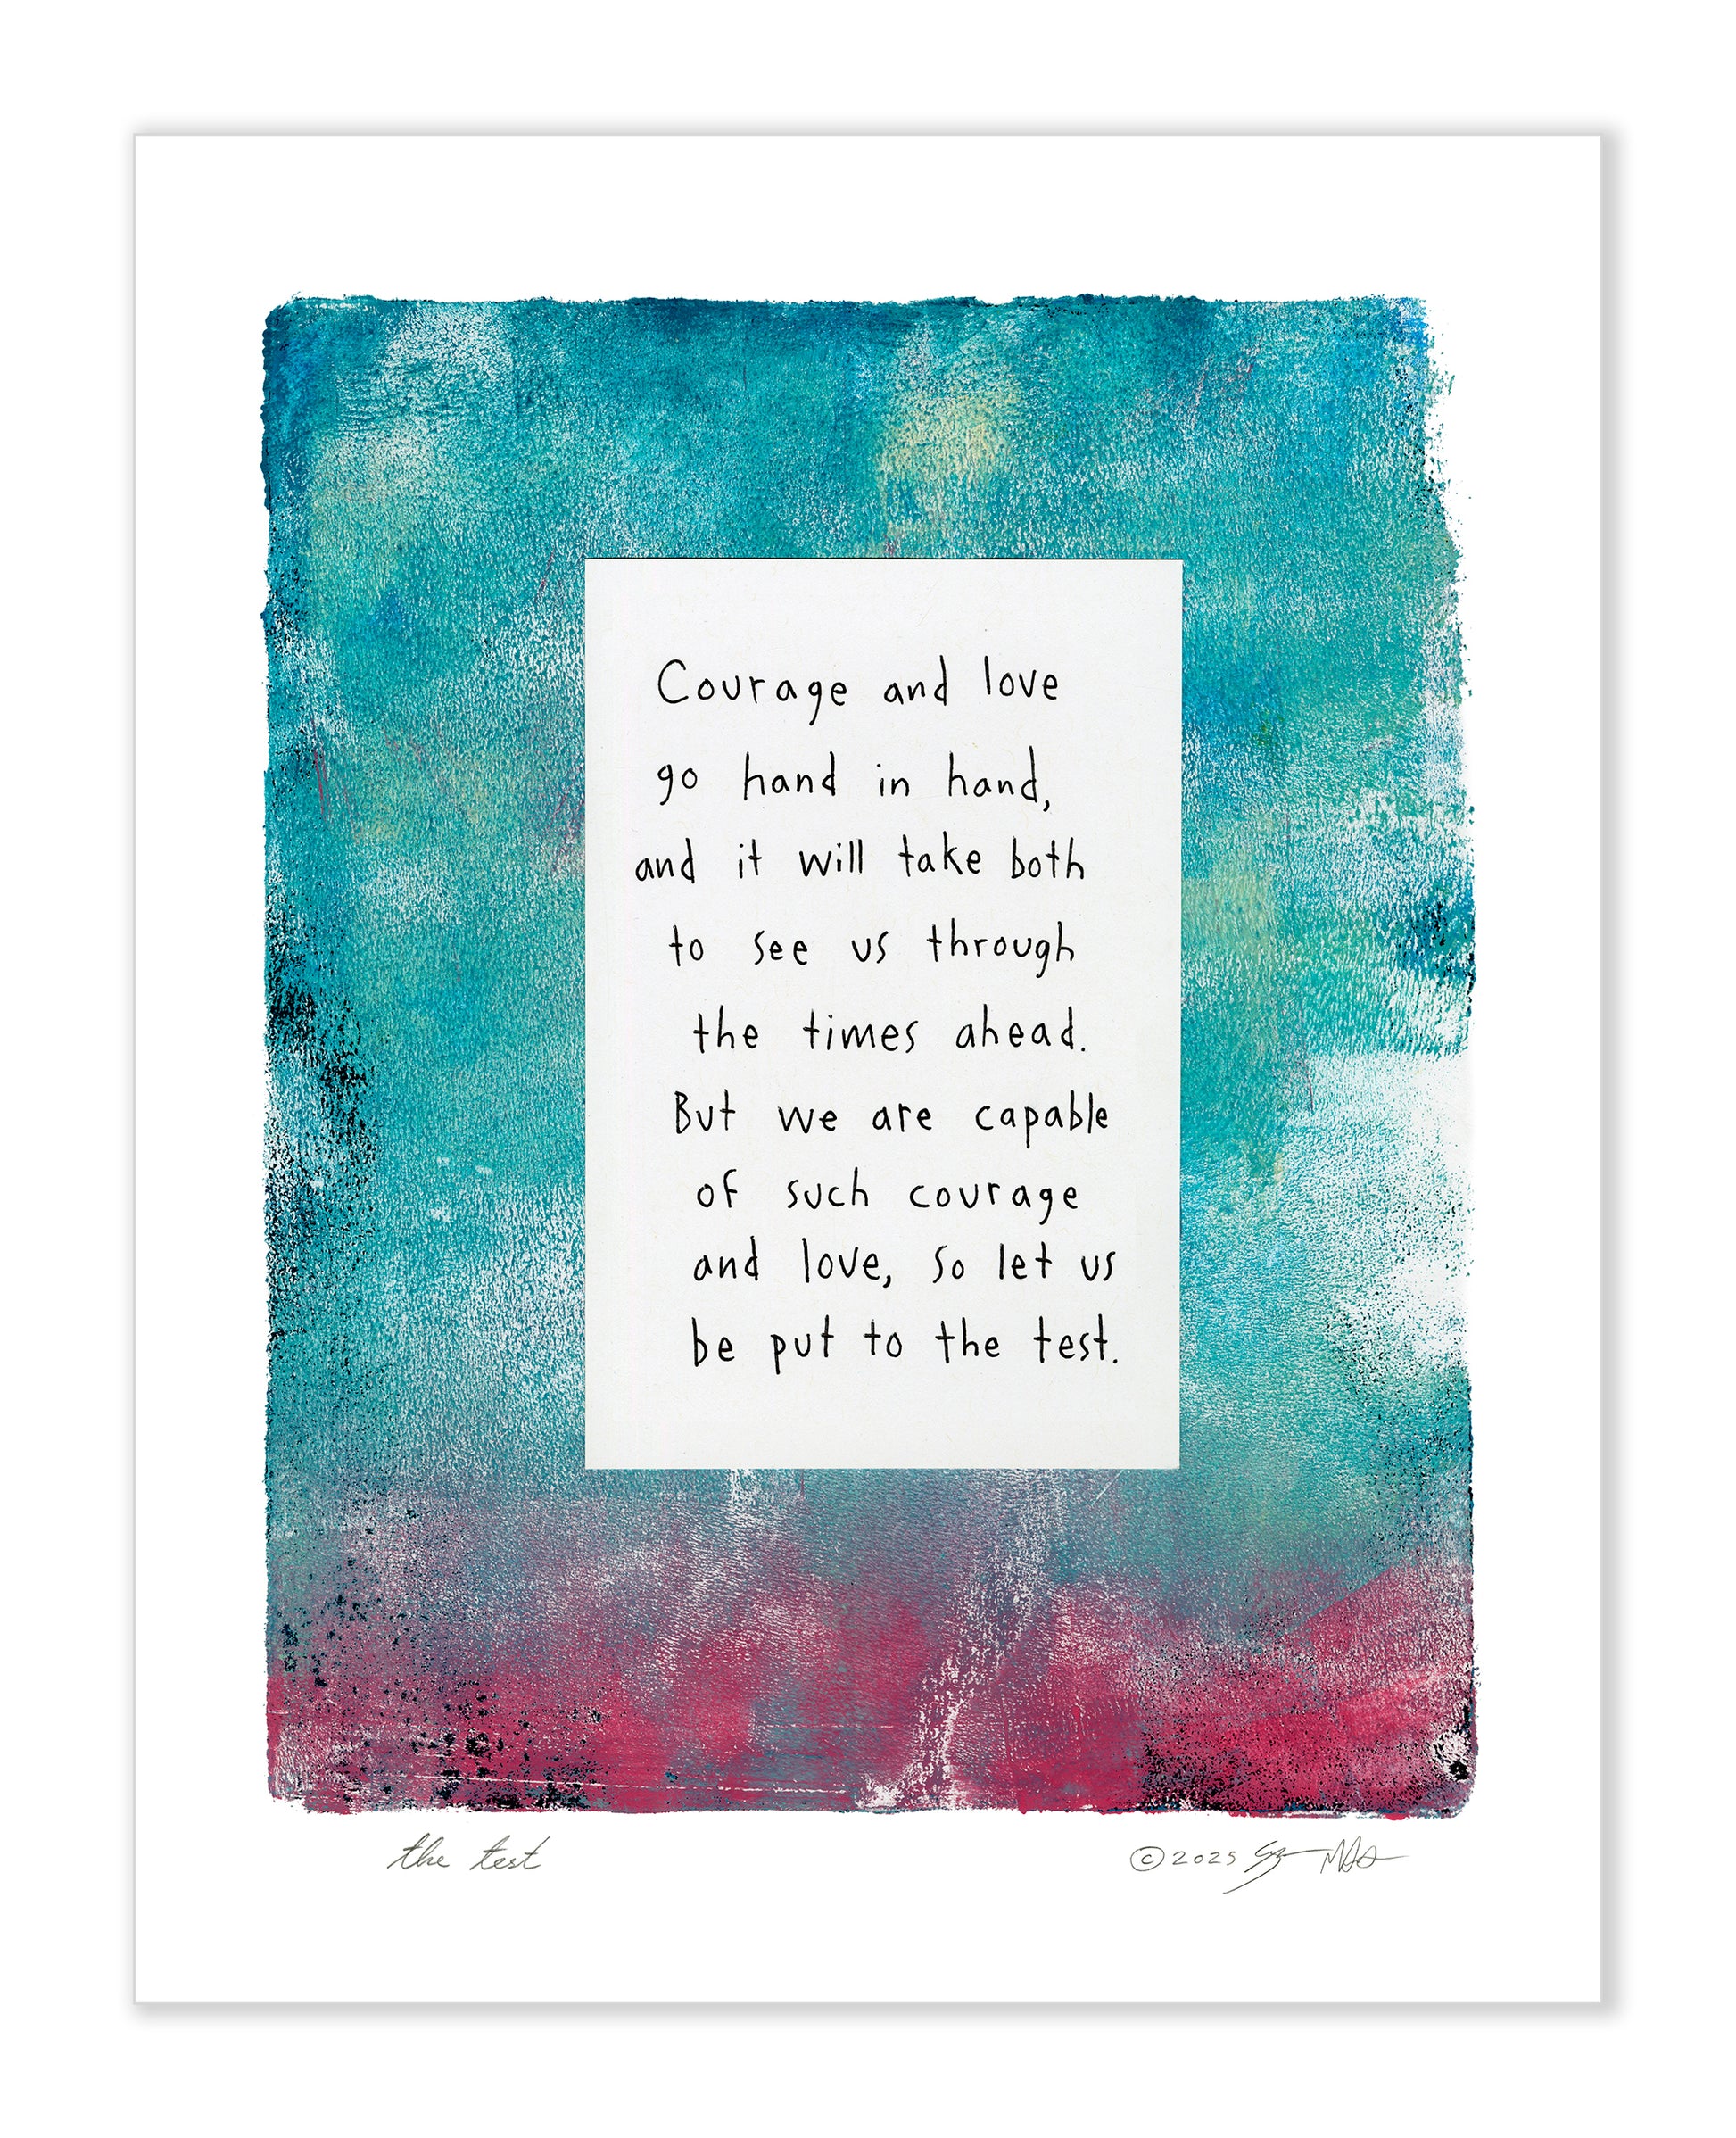 Courage and love
go hand in hand,
and it will take both
to see us through
the times ahead.
But we are capable
of such courage
and love, so let us
be put to the test.
the test
©2025